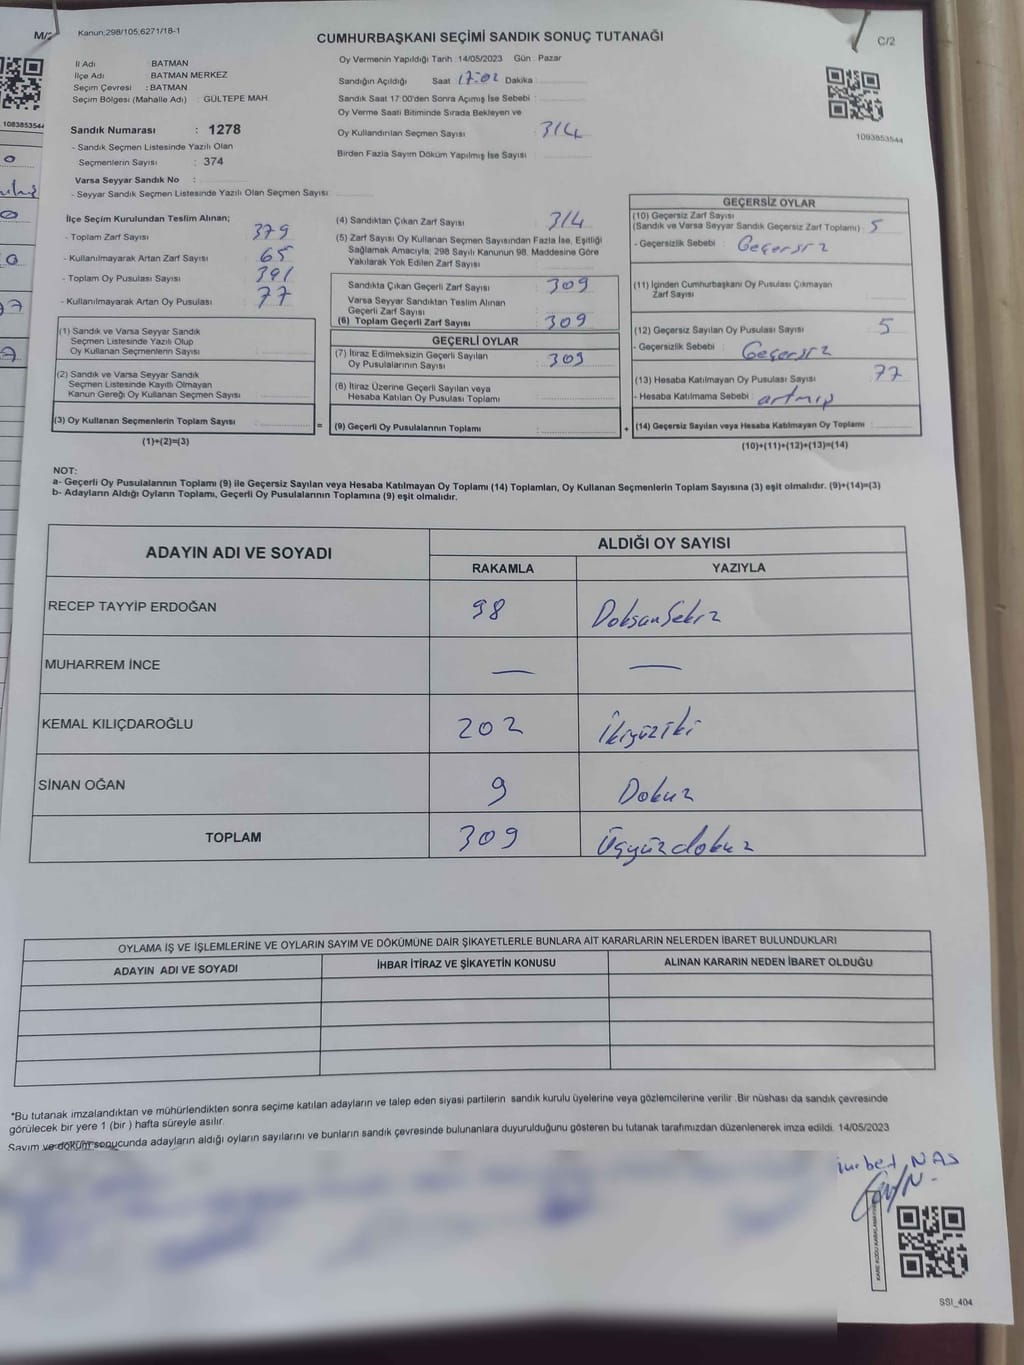 M/2
Kanun;298/105;6271/18-1
CUMHURBAŞKANI SEÇİMİ SANDIK SONUÇ TUTANAĞI
C/2
İl Adı BATMAN
İlçe Adı BATMAN MERKEZ
Seçim Çevresi : BATMAN
Seçim Bölgesi (Mahalle Adı) : GÜLTEPE MAH.
Sandık Numarası : 1278
- Sandık Seçmen Listesinde Yazılı Olan
Seçmenlerin Sayısı : 374
Varsa Seyyar Sandık No :
- Seyyar Sandık Seçmen Listesinde Yazılı Olan Seçmen Sayısı :
Oy Vermenin Yapıldığı Tarih : 14/05/2023 Gün : Pazar
Sandığın Açıldığı Saat 17:02 Dakika :
Sandık Saat 17:00'den Sonra Açımış İse Sebebi :
Oy Verme Saati Bitiminde Sırada Bekleyen ve
Oy Kullandırılan Seçmen Sayısı : 314
Birden Fazla Sayım Döküm Yapılmış İse Sayısı :
1083853544
1093853544
İlçe Seçim Kurulundan Teslim Alınan;
- Toplam Zarf Sayısı 379
- Kullanılmayarak Artan Zarf Sayısı : 65
- Toplam Oy Pusulası Sayısı : 391
- Kullanılmayarak Artan Oy Pusulası : 77
(1) Sandık ve Varsa Seyyar Sandık
Seçmen Listesinde Yazılı Olup
Oy Kullanan Seçmenlerin Sayısı :
(2) Sandık ve Varsa Seyyar Sandık
Seçmen Listesinde Kayıtlı Olmayan
Kanun Gereği Oy Kullanan Seçmen Sayısı :
(3) Oy Kullanan Seçmenlerin Toplam Sayısı :
(1)+(2)=(3)
(4) Sandıktan Çıkan Zarf Sayısı : 314
(5) Zarf Sayısı Oy Kullanan Seçmen Sayısından Fazla İse, Eşitliği
Sağlamak Amacıyla; 298 Sayılı Kanunun 98. Maddesine Göre
Yakılarak Yok Edilen Zarf Sayısı :
Sandıkta Çıkan Geçerli Zarf Sayısı : 309
Varsa Seyyar Sandıktan Teslim Alınan
Geçerli Zarf Sayısı :
(6) Toplam Geçerli Zarf Sayısı : 309
GEÇERLİ OYLAR
(7) İtiraz Edilmeksizin Geçerli Sayılan
Oy Pusulalarının Sayısı : 309
(8) İtiraz Üzerine Geçerli Sayılan veya
Hesaba Katılan Oy Pusulası Toplamı :
= (9) Geçerli Oy Pusulalarının Toplamı :
GEÇERSİZ OYLAR
(10) Geçersiz Zarf Sayısı
(Sandık ve Varsa Seyyar Sandık Geçersiz Zarf Toplamı) : 5
- Geçersizlik Sebebi : Geçersiz
(11) İçinden Cumhurbaşkanı Oy Pusulası Çıkmayan
Zarf Sayısı :
(12) Geçersiz Sayılan Oy Pusulası Sayısı : 5
- Geçersizlik Sebebi : Geçersiz
(13) Hesaba Katılmayan Oy Pusulası Sayısı : 77
- Hesaba Katılmama Sebebi : artmış
+ (14) Geçersiz Sayılan veya Hesaba Katılmayan Oy Toplamı :
(10)+(11)+(12)+(13)=(14)
NOT:
a- Geçerli Oy Pusulalarının Toplamı (9) ile Geçersiz Sayılan veya Hesaba Katılmayan Oy Toplamı (14) Toplamları, Oy Kullanan Seçmenlerin Toplam Sayısına (3) eşit olmalıdır. (9)+(14)=(3)
b- Adayların Aldığı Oyların Toplamı, Geçerli Oy Pusulalarının Toplamına (9) eşit olmalıdır.
ADAYIN ADI VE SOYADI ALDIĞI OY SAYISI
RAKAMLA YAZIYLA
RECEP TAYYİP ERDOĞAN 98 DoksanSekiz
MUHARREM İNCE — —
KEMAL KILIÇDAROĞLU 202 İkiyüziki
SİNAN OĞAN 9 Dokuz
TOPLAM 309 Üçyüzdokuz
OYLAMA İŞ VE İŞLEMLERİNE VE OYLARIN SAYIM VE DÖKÜMÜNE DAİR ŞİKAYETLERLE BUNLARA AİT KARARLARIN NELERDEN İBARET BULUNDUKLARI
ADAYIN ADI VE SOYADI İHBAR İTİRAZ VE ŞİKAYETİN KONUSU ALINAN KARARIN NEDEN İBARET OLDUĞU
*Bu tutanak imzalandıktan ve mühürlendikten sonra seçime katılan adayların ve talep eden siyasi partilerin sandık kurulu üyelerine veya gözlemcilerine verilir .Bir nüshası da sandık çevresinde
görülecek bir yere 1 (bir ) hafta süreyle asılır.
Sayım ve döküm sonucunda adayların aldığı oyların sayılarını ve bunların sandık çevresinde bulunanlara duyurulduğunu gösteren bu tutanak tarafımızdan düzenlenerek imza edildi. 14/05/2023
NAS
SSI_404